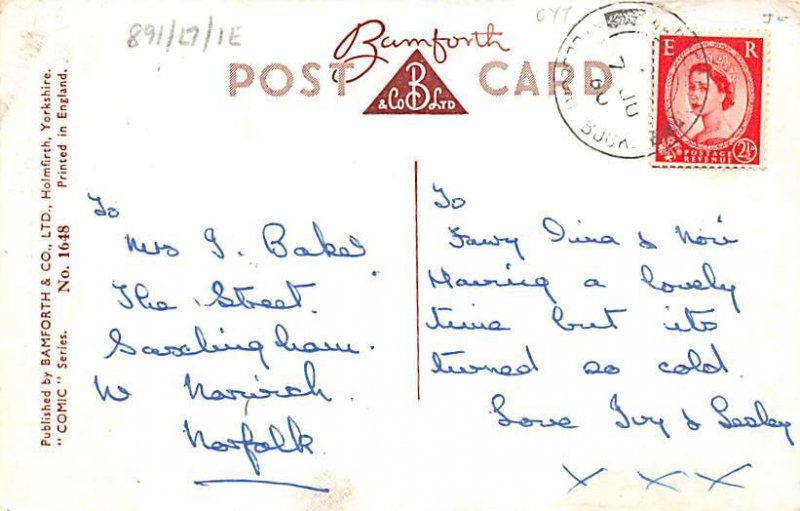 891/L7/1E
Bamforth
POST CARD
B
& Co LTD
E R
POSTAGE
REVENUE
2½
7 JU
60
Published by BAMFORTH & CO., LTD., Holmfirth, Yorkshire.
"COMIC" Series. No. 1648 Printed in England.
To
Mrs J. Baker
The Street.
Saxlingham.
Nr Norwich.
Norfolk
To
Tina & 
Having a lovely
time but its
turned so cold.
Love Ivy & Lesley
X X X